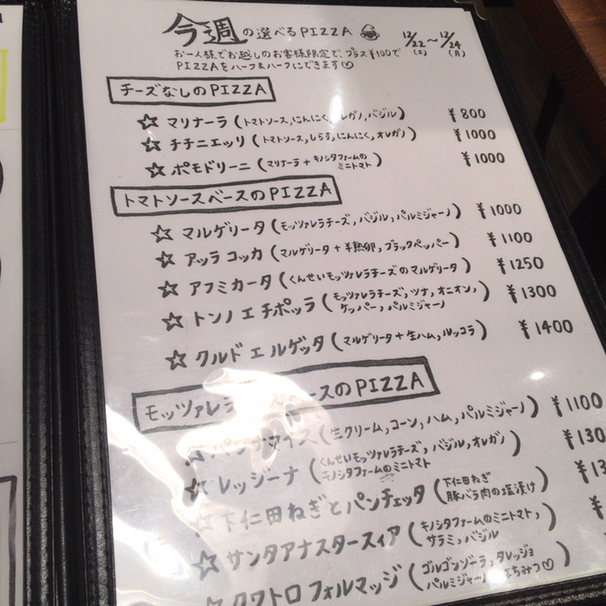 今週の選べるPIZZA 12/22(土)～12/24(月)
お一人様でお越しのお客様限定で、プラス¥100で
PIZZAをハーフ&ハーフにできます♡
チーズなしのPIZZA
☆ マリナーラ(トマトソース,にんにく,オレガノ,バジル) ¥800
☆ チチニエッリ(トマトソース,しらす,にんにく,オレガノ) ¥1000
☆ ポモドリーニ(マリナーラ+キノシタファームのミニトマト) ¥1000
トマトソースベースのPIZZA
☆ マルゲリータ(モッツァレラチーズ,バジル,パルミジャーノ) ¥1000
☆ アッラ コッカ(マルゲリータ+半熟卵,ブラックペッパー) ¥1100
☆ アフミカータ(くんせいモッツァレラチーズのマルゲリータ) ¥1250
☆ トンノ エ チポッラ(モッツァレラチーズ,ツナ,オニオン,ケッパー,パルミジャーノ) ¥1300
☆ クルド エ ルゲッタ(マルゲリータ+生ハム,ルッコラ) ¥1400
モッツァレラ ースのPIZZA
☆ パンナマイス(生クリーム,コーン,ハム,パルミジャーノ) ¥1100
☆ レッジーナ(くんせいモッツァレラチーズ,バジル,オレガノ キノシタファームのミニトマト) ¥130
☆ 下仁田ねぎとパンチェッタ(下仁田ねぎ 豚バラ肉の塩漬け) ¥13
☆ サンタアナスタースィア(キノシタファームのミニトマト,サラミ,バジル) ¥
クワトロ フォルマッジ(ゴルゴンゾーラ,タレッジョ パルミジャーノ はちみつ♡)